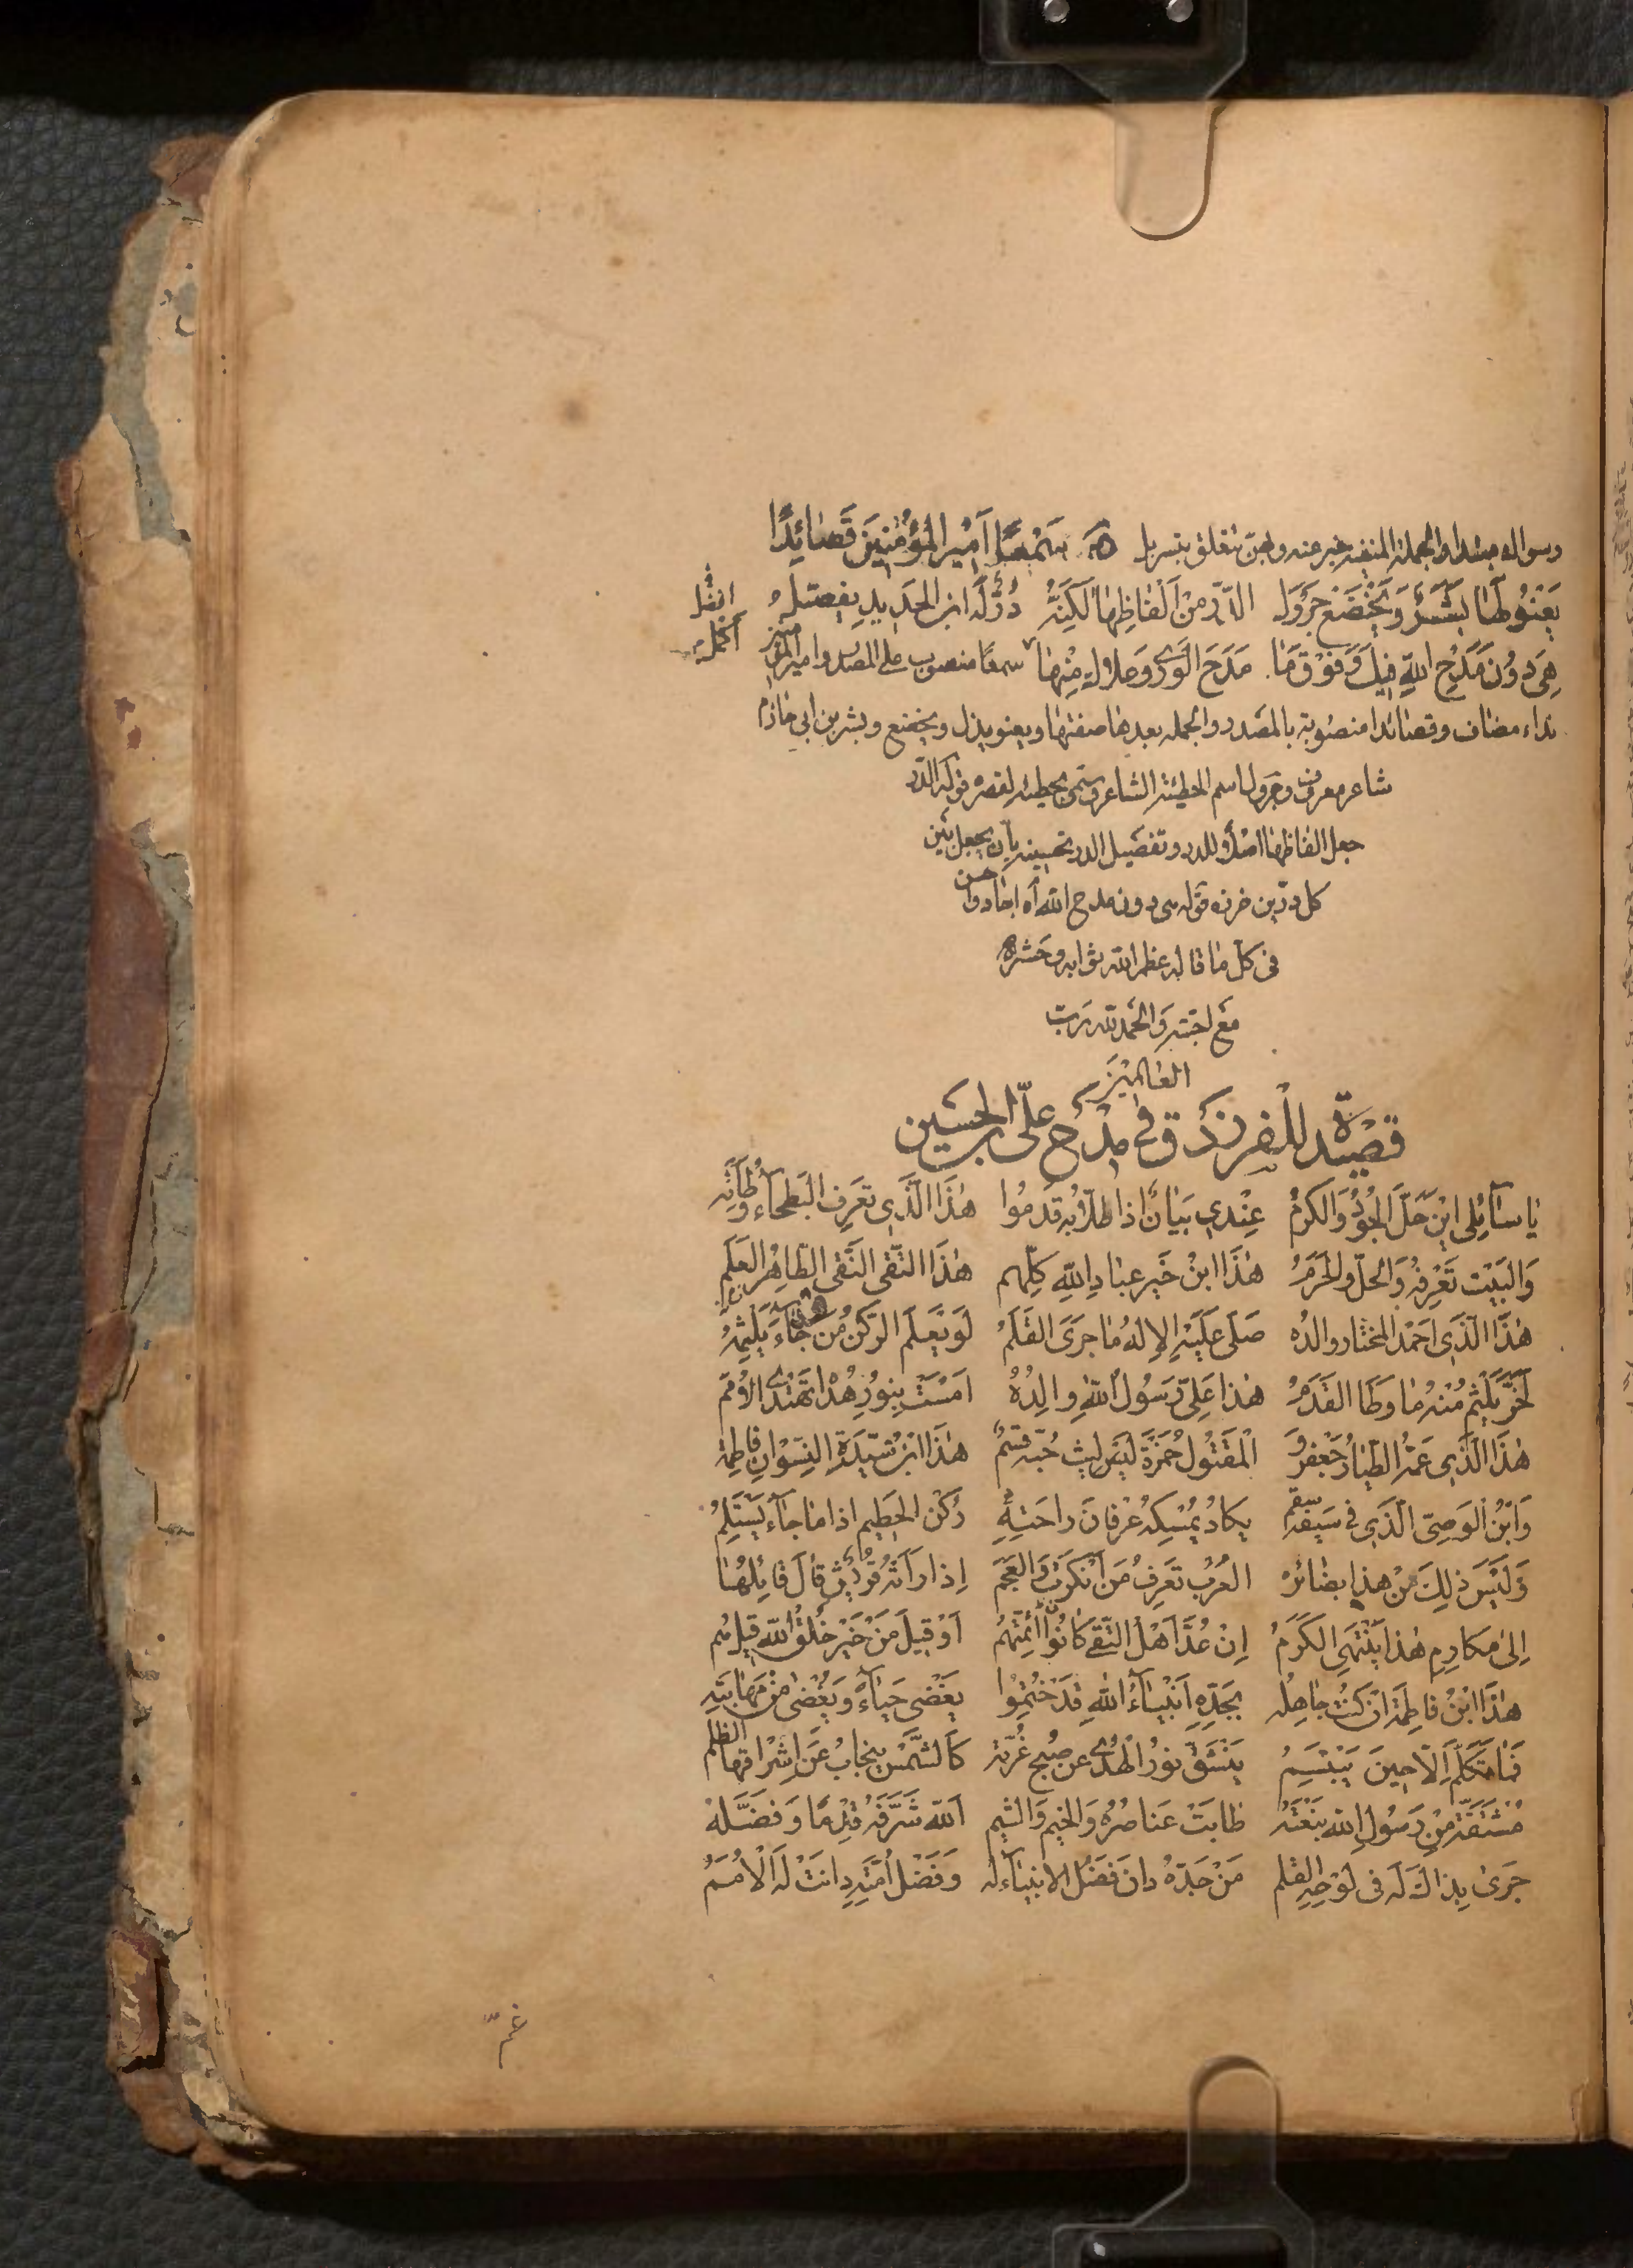 وسواله مبتدا والجملة المنفية خبر عنه ولجن تتعلق بتسربل سَمْعًا اَمِيرَ الْمُؤْمِنِينَ قَصَائِدًا
يَعْنُو لَهَا بِشْرٌ وَيَخْضَعُ جَرْوَلُ الدُّرُّ مِنْ اَلْفَاظِهَا لٰكِنَّهُ دُرٌّ لَهُ ابن الحَدِيدِ يفصّلُ
هِيَ دُونَ مَدْحِ اللّٰهِ فِيكَ وَفَوْقَ مَا مَدَحَ الْوَرٰى وَعلاك مِنْهَا اكمل سمعًا منصوب على المصدر وامير المؤمنين
نداء مضاف وقصائدا منصوبة بالمصدر والجملة بعدها صفتها ويعنو يذل ويخضع وبشر بن ابي خازم
شاعر معروف وجرول اسم الحطيئة الشاعر وسمى بحطيئة لقصره قوله الدر
جعل الفاظها اصلا للدر وتفضيل الدر تحسينه بأن يجعل بين
كل درتين خرزه قوله هي دون مدح الله اه اجاد واحسن
في كل ما قاله عظم الله ثوابه وحشره
مَعَ احبته وَالْحَمْدُ لله رَبّ
العٰالَمِيْنَ
قصيدة للفرزدق فى مدح علىّ ابن الحسين
يٰا سٰائِلى اَيْنَ حَلَّ الْجُودُ وَالكَرَمُ عِنْدى بَيٰانٌ اذا طُلّابُه قَدِمُوا هٰذَا الَّذى تعَرِفُ البَطْحٰاءُ وَطْأَتَه
وَالْبَيْتُ تَعْرِفُهُ وَالْحِلُّ وَالْحَرَمُ هٰذَا ابنُ خَيرِ عِبٰادِ اللّٰهِ كلّهم هٰذَا التَّقى النَّقى الطّاهِرُ العَلَم
هٰذَا الَّذى اَحمَدُ المختار والدُه صَلّى عَلَيْهِ الإِلهُ مٰا جرَى القَلَمُ لَو يَعلَم الرّكنُ مَن جٰاءَ يَلثِمُهُ
لَخَرّ يَلْثِمُ مِنْهُ مٰا وَطَا القَدَمُ هٰذا عَلِىّ رَسُولُ اللّٰهِ والِدُهُ امَسَتْ بِنُورِ هُدٰاهُ تَهْتَدى الاُمَم
هٰذَا الَّذى عَمّهُ الطّيّارُ جَعْفَرُ وَ الْمَقْتُولُ حَمْزَةُ لَيثٌ حُبّه قسمُ هٰذَا ابْنُ سَيّدَةِ النِسْوَانِ فاطِمَة
وَابْنُ الْوَصِىّ الَّذِى فى سَيْفه نقم يكادُ يُمْسِكهُ عِرْفانَ راحَتِهِ رُكْنُ الحَطِيمِ اذا مٰا جٰاءَ يَسْتَلِمُ
وَلَيْسَ ذٰلِكَ مَنْ هٰذا بضائره العُرْبُ تَعرِفُ مَن اَنْكَرْتَ وَالعَجَم إِذا رَاَتْهُ قُرَيْشٌ قٰالَ قٰائِلُهٰا
اِلىٰ مَكارِمِ هٰذا يَنْتَهِى الكَرَمُ اِنْ عُدَّ اَهْلُ التُّقٰى كٰانُوا أئِمَّتَهُمْ اَوْ قيلَ مَنْ خَيرُ خَلْقِ اللّٰهِ قيل هُم
هٰذَا ابْنُ فاطِمَةَ ان كُنْتَ جٰاهِلَه بِجَدِّهِ اَنْبِيٰاءُ اللّٰهِ قَدْ خُتِمُوا يغَضى حَيٰاءً وَيُغْضٰى مِنْ مَهٰابَتِه
فَمٰا يُكَلّمُ إلّا حِينَ يَبْتَسِمُ يَنْشَقّ نُورُ الْهُدٰى عن صُبْحِ غُرّتِه كَالشَّمْسِ ينجابُ عَن إِشْراقِهٰا الظلم
مُشْتَقّةٌ مِنْ رَسُولِ اللّٰه نَبْعَتُهُ طٰابَتْ عَنٰاصِرُهُ وَالخِيمُ وَالشِيَمُ اَللّٰهُ شَرَّفَهُ قِدْمًا وَفَضَّلَهُ
جَرٰى بِذاكَ لَه فى لَوْحِهِ القَلَم مَنْ جَدّهُ دانَ فَضْلُ الانبيٰاء لَه وَفَضْلُ اُمَّتِهِ دانَتْ لَه الْاُمَمُ